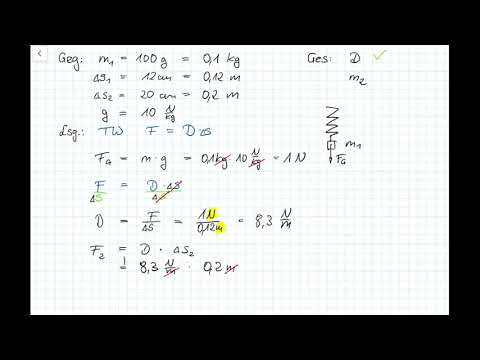 Geg: m₁ = 100 g = 0,1 kg Ges: D ✓
Δs₁ = 12 cm = 0,12 m m₂
Δs₂ = 20 cm = 0,2 m
g = 10 N/kg
Lsg: TW F = D Δs
m₁
F_G = m · g = 0,1 kg · 10 N/kg = 1 N F_G
F/Δs = D · Δs/Δs
D = F/Δs = 1N/0,12m = 8,3 N/m
F₂ = D · Δs₂
= 8,3 N/m · 0,2 m